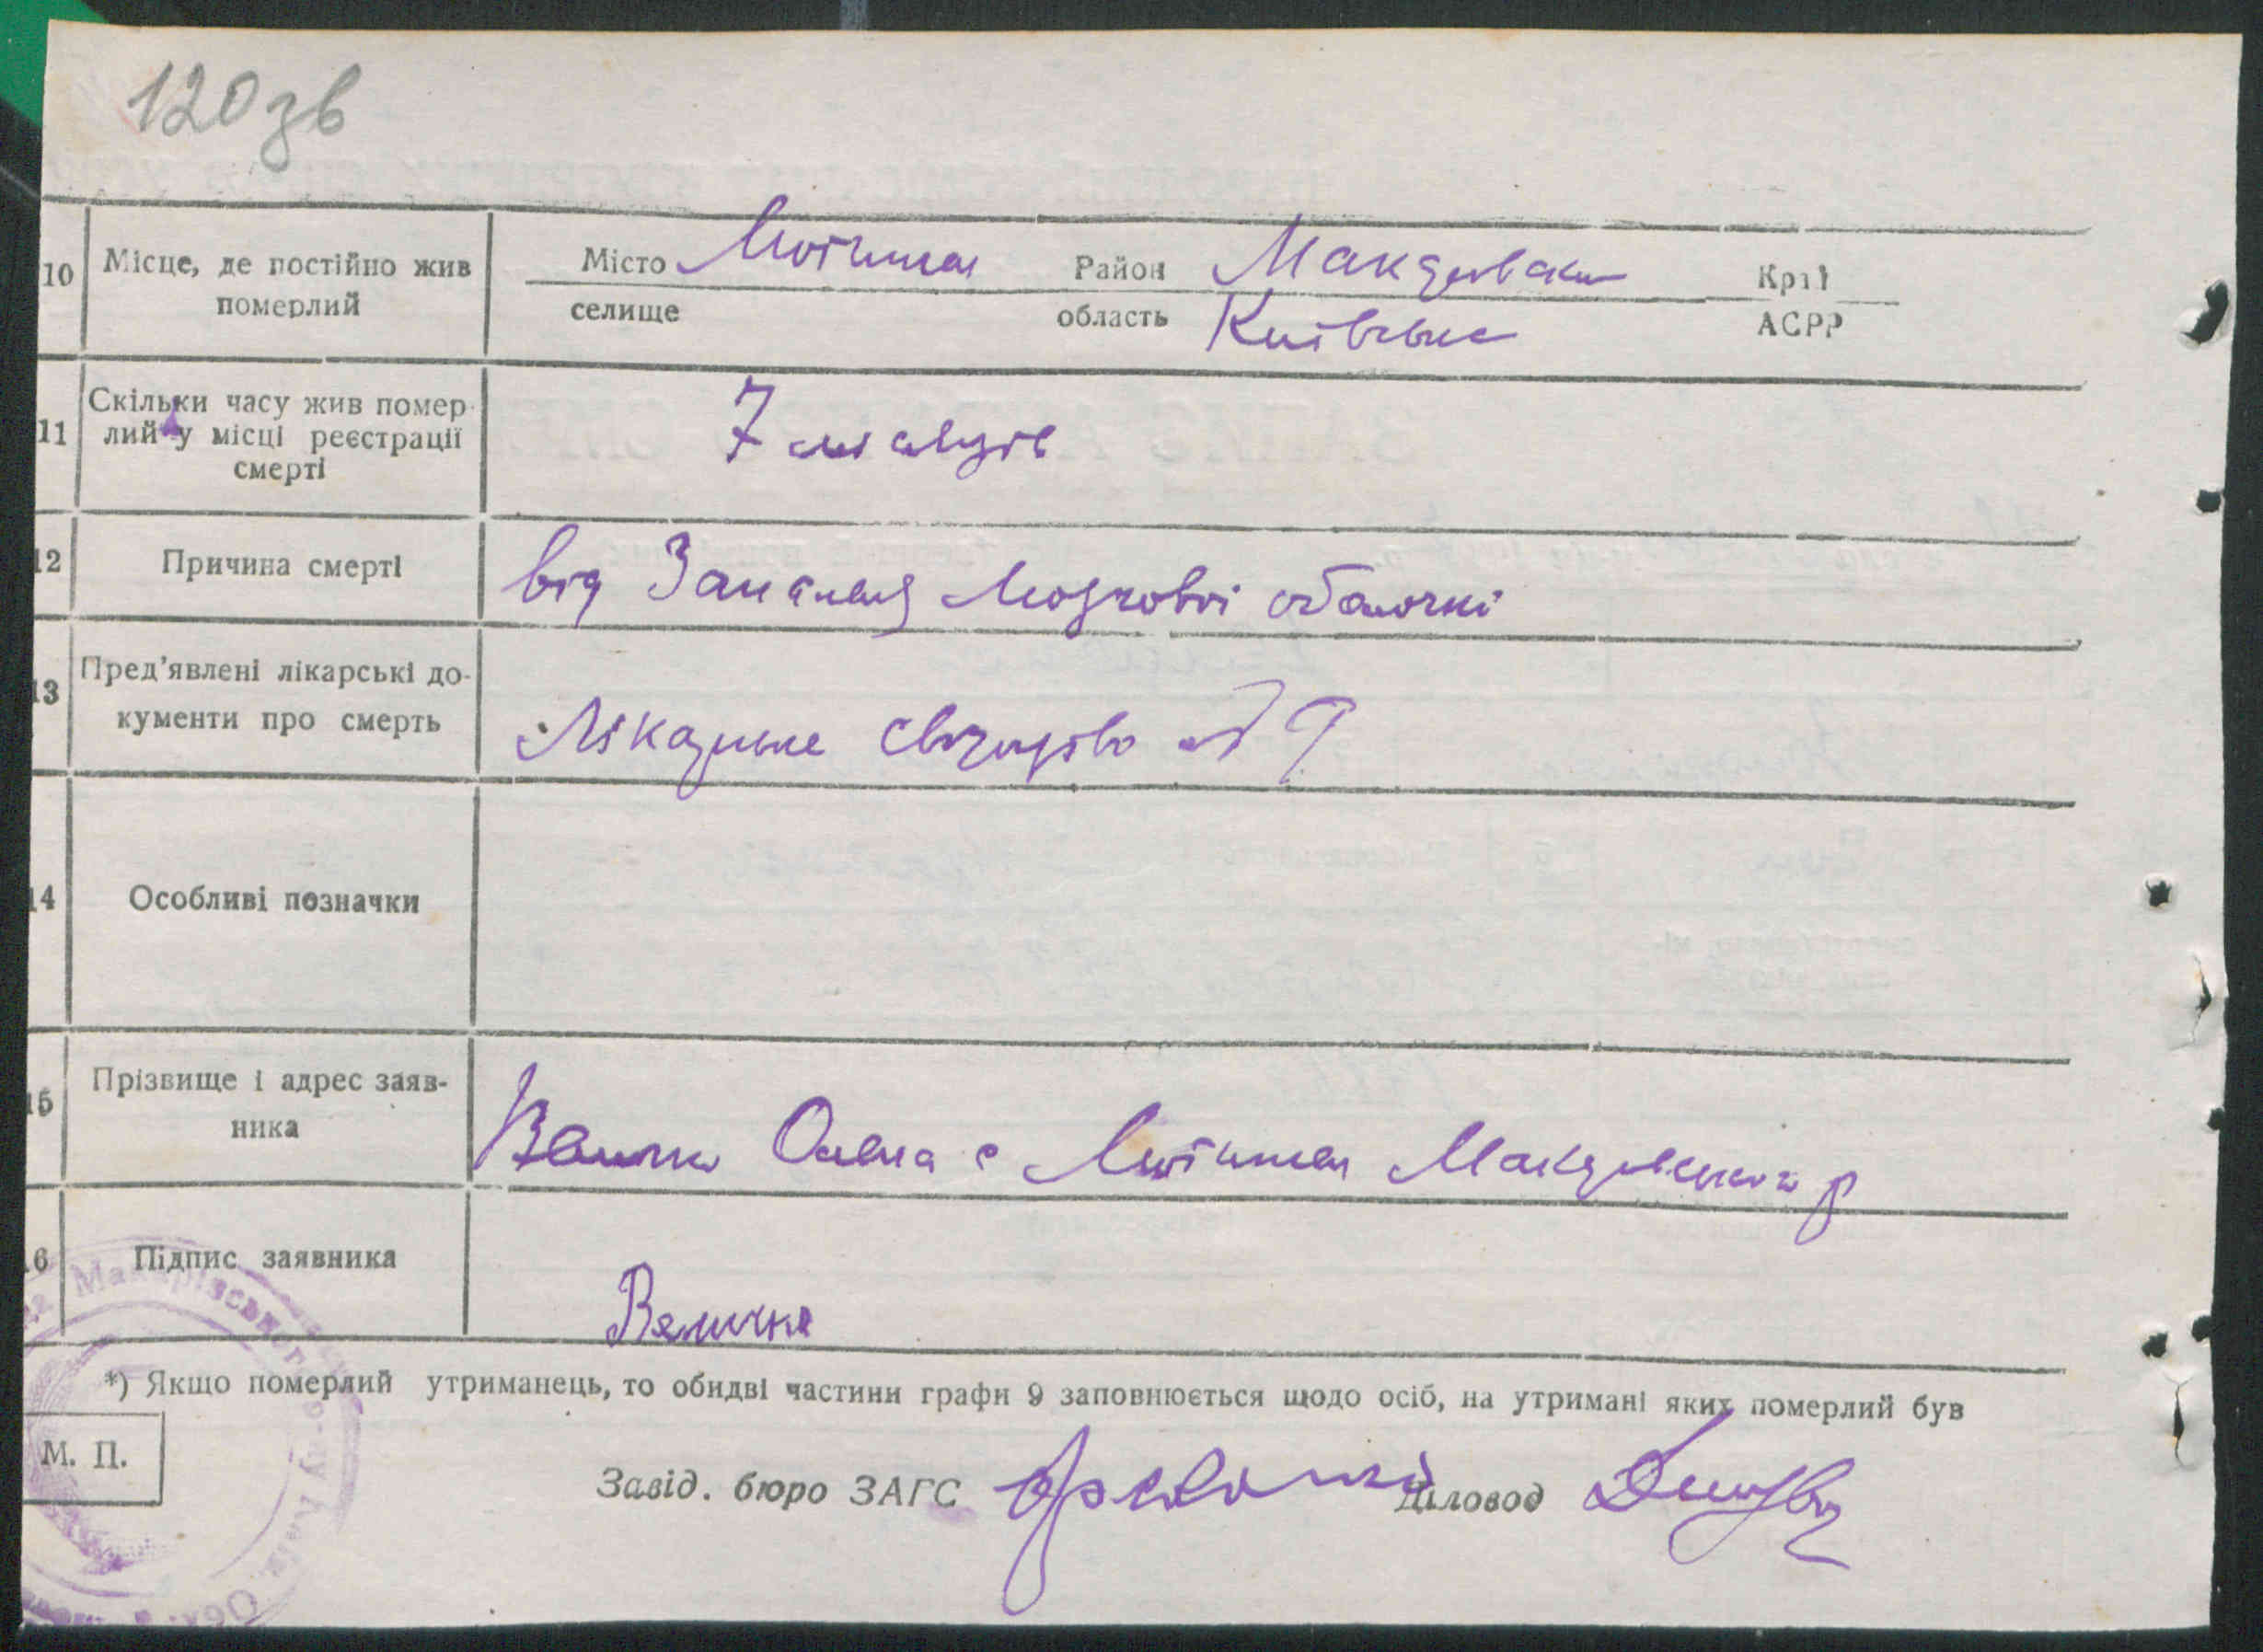 120зв
10 Місце, де постійно жив померлий
Місто Мотижин Район Макарівськ Край
селище область Київське АСРР
11 Скільки часу жив помер-
лий у місці реєстрації
смерті
7 місяців
12 Причина смерті
від Запалення Мозкової оболочкі
13 Пред'явлені лікарські до-
кументи про смерть
Лікарське свідоцтво № 9
14 Особливі позначки
15 Прізвище і адрес заяв-
ника
Олена с Макарівського р
16 Підпис заявника
Величка
*) Якщо померлий утриманець, то обидві частини графи 9 заповнюється щодо осіб, на утримані яких померлий був
М. П.
Завід. бюро ЗАГС Діловод
Макарівського